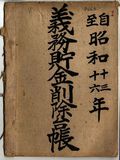 自至昭和十三十六年
義務貯金削除台帳